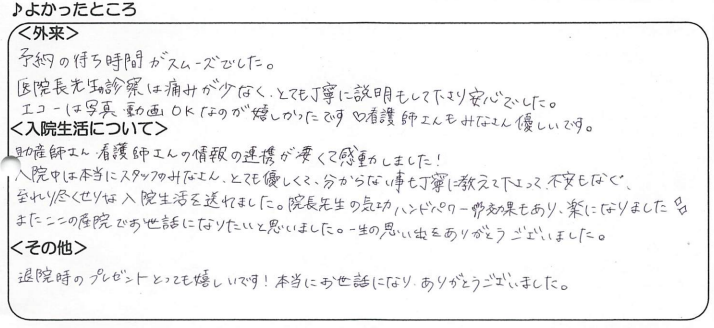 ♪よかったところ
<外来>
予約の待ち時間がスムーズでした。
医院長先生の診察は痛みが少なく、とても丁寧に説明もして下さり安心でした。
エコーは写真・動画OKなのが嬉しかったです♡看護師さんもみなさん優しいです。
<入院生活について>
助産師さん・看護師さんの情報の連携が凄くて感動しました!
入院中は本当にスタッフのみなさん、とても優しくて、分からない事も丁寧に教えて下さって、不安もなく、
至れり尽くせりな入院生活を送れました。院長先生の気功ハンドパワー効果もあり、楽になりました
またここの産院でお世話になりたいと思いました。一生の思い出をありがとうございました。
<その他>
退院時のプレゼントとっても嬉しいです!本当にお世話になり、ありがとうございました。